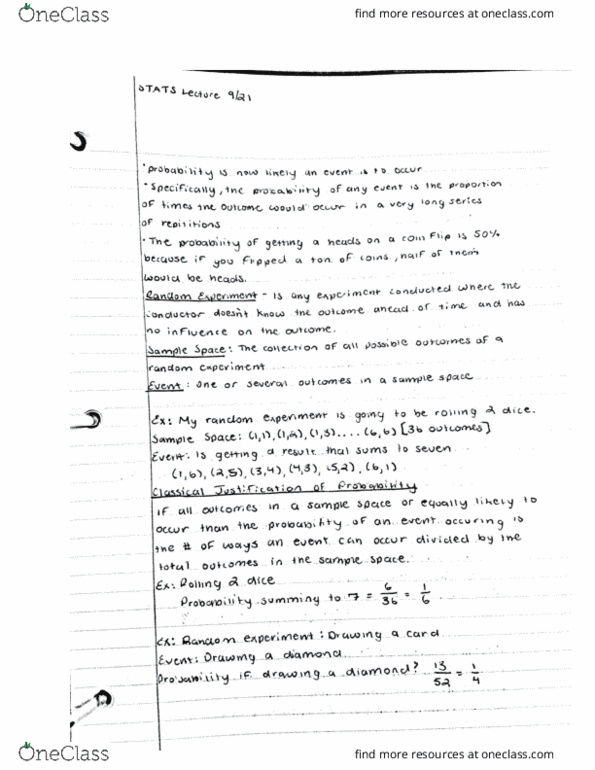 OneClass
find more resources at oneclass.com
STATS Lecture 9/21
• probability is how likely an event is to occur
• Specifically, the probability of any event is the proportion
of times the outcome would occur in a very long series
of repititions
• The probability of getting a heads on a coin flip is 50%
because if you flipped a ton of coins, half of them
would be heads.
Random Experiment - is any experiment conducted where the
conductor doesn't know the outcome ahead of time and has
no influence on the outcome.
Sample Space: The collection of all possible outcomes of a
random experiment
Event: one or several outcomes in a sample space
Ex: My random experiment is going to be rolling 2 dice.
Sample Space: (1,1),(1,2),(1,3).... (6,6) [36 outcomes]
Event: is getting a result that sums to seven
(1,6),(2,5),(3,4),(4,3),(5,2),(6,1)
Classical Justification of Probability
if all outcomes in a sample space or equally likely to
occur than the probability of an event occuring is
the # of ways an event can occur divided by the
total outcomes in the sample space.
Ex: Rolling 2 dice
Probability summing to 7 = 6/36 = 1/6
Ex: Random experiment: Drawing a card
Event: Drawing a diamond
Probability if drawing a diamond? 13/52 = 1/4
OneClass
find more resources at oneclass.com